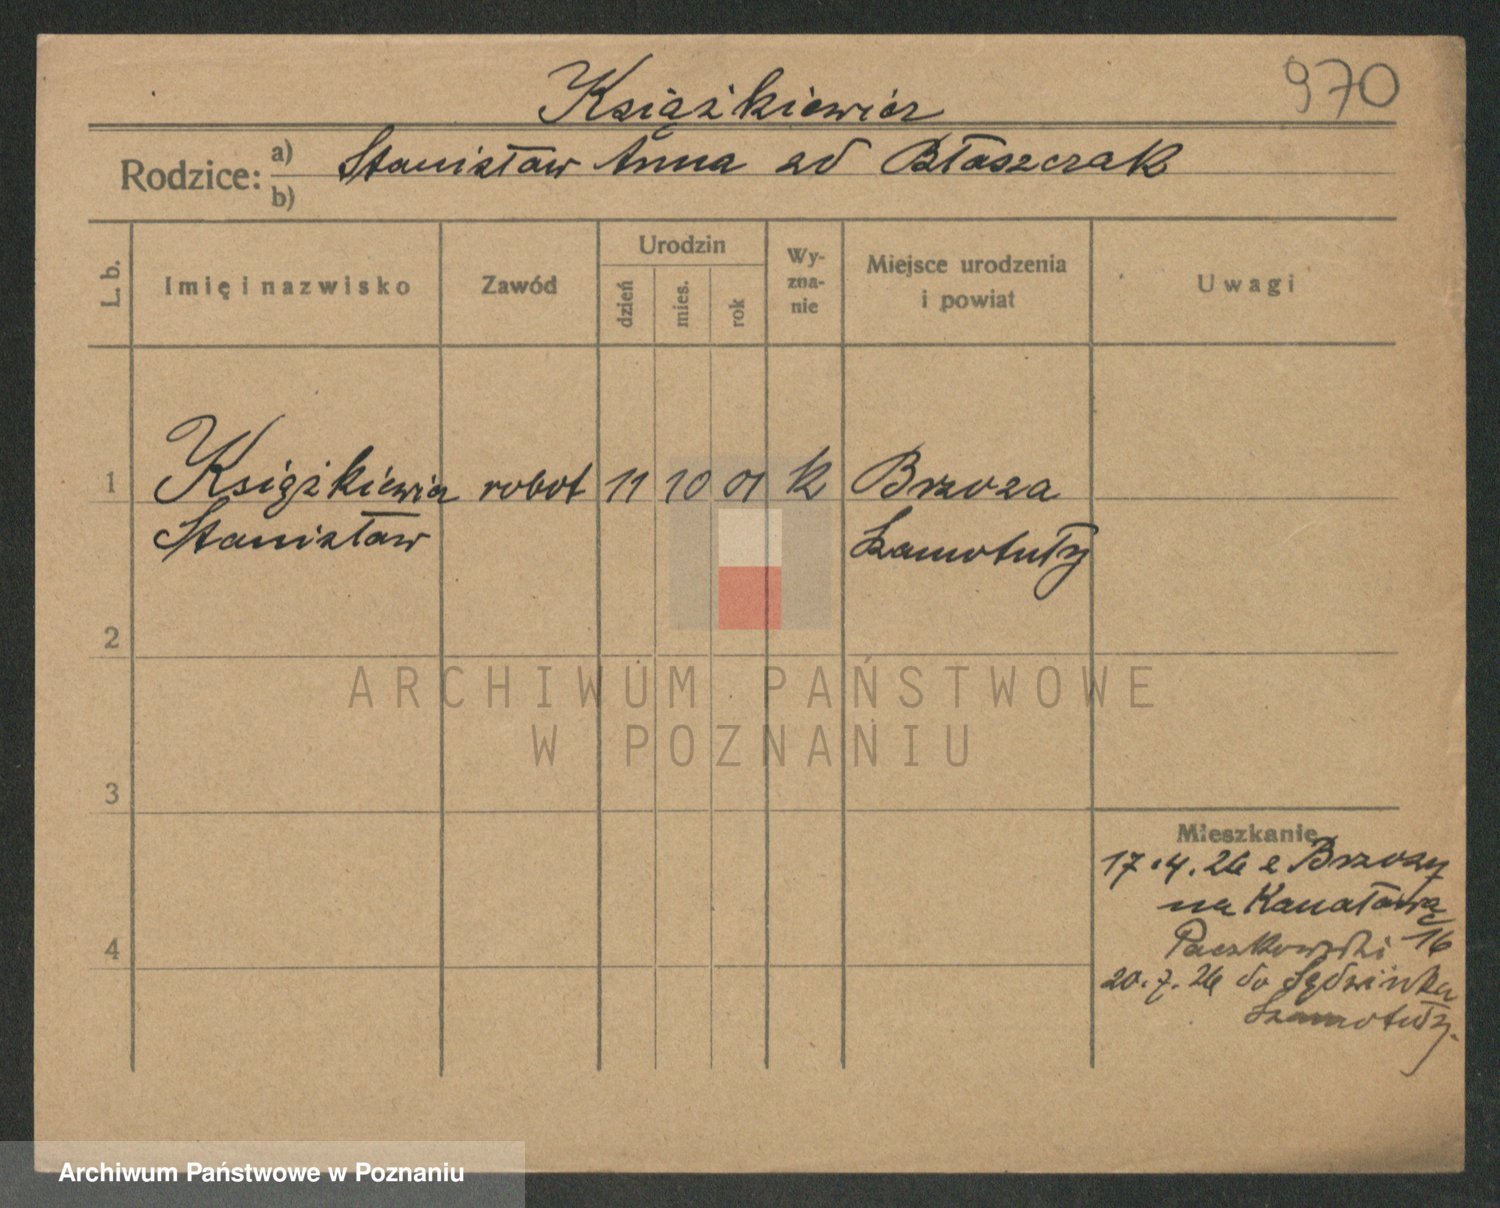 970
Książkiewicz
Rodzice: a) Stanisław Anna zd Błaszczak
b)
L. b. Imię i nazwisko Zawód Urodzin dzień mies. rok Wy-zna-nie Miejsce urodzenia i powiat Uwagi
1 Książkiewicz robot 11 10 01 k Brzoza
Stanisław Szamotuły
2
ARCHIWUM PAŃSTWOWE
W POZNANIU
3
Mieszkanie
17.4.26 z Brzozy
na Kanałową
Paczkowski 16
4
20.7.26 do
Szamotuły.
Archiwum Państwowe w Poznaniu